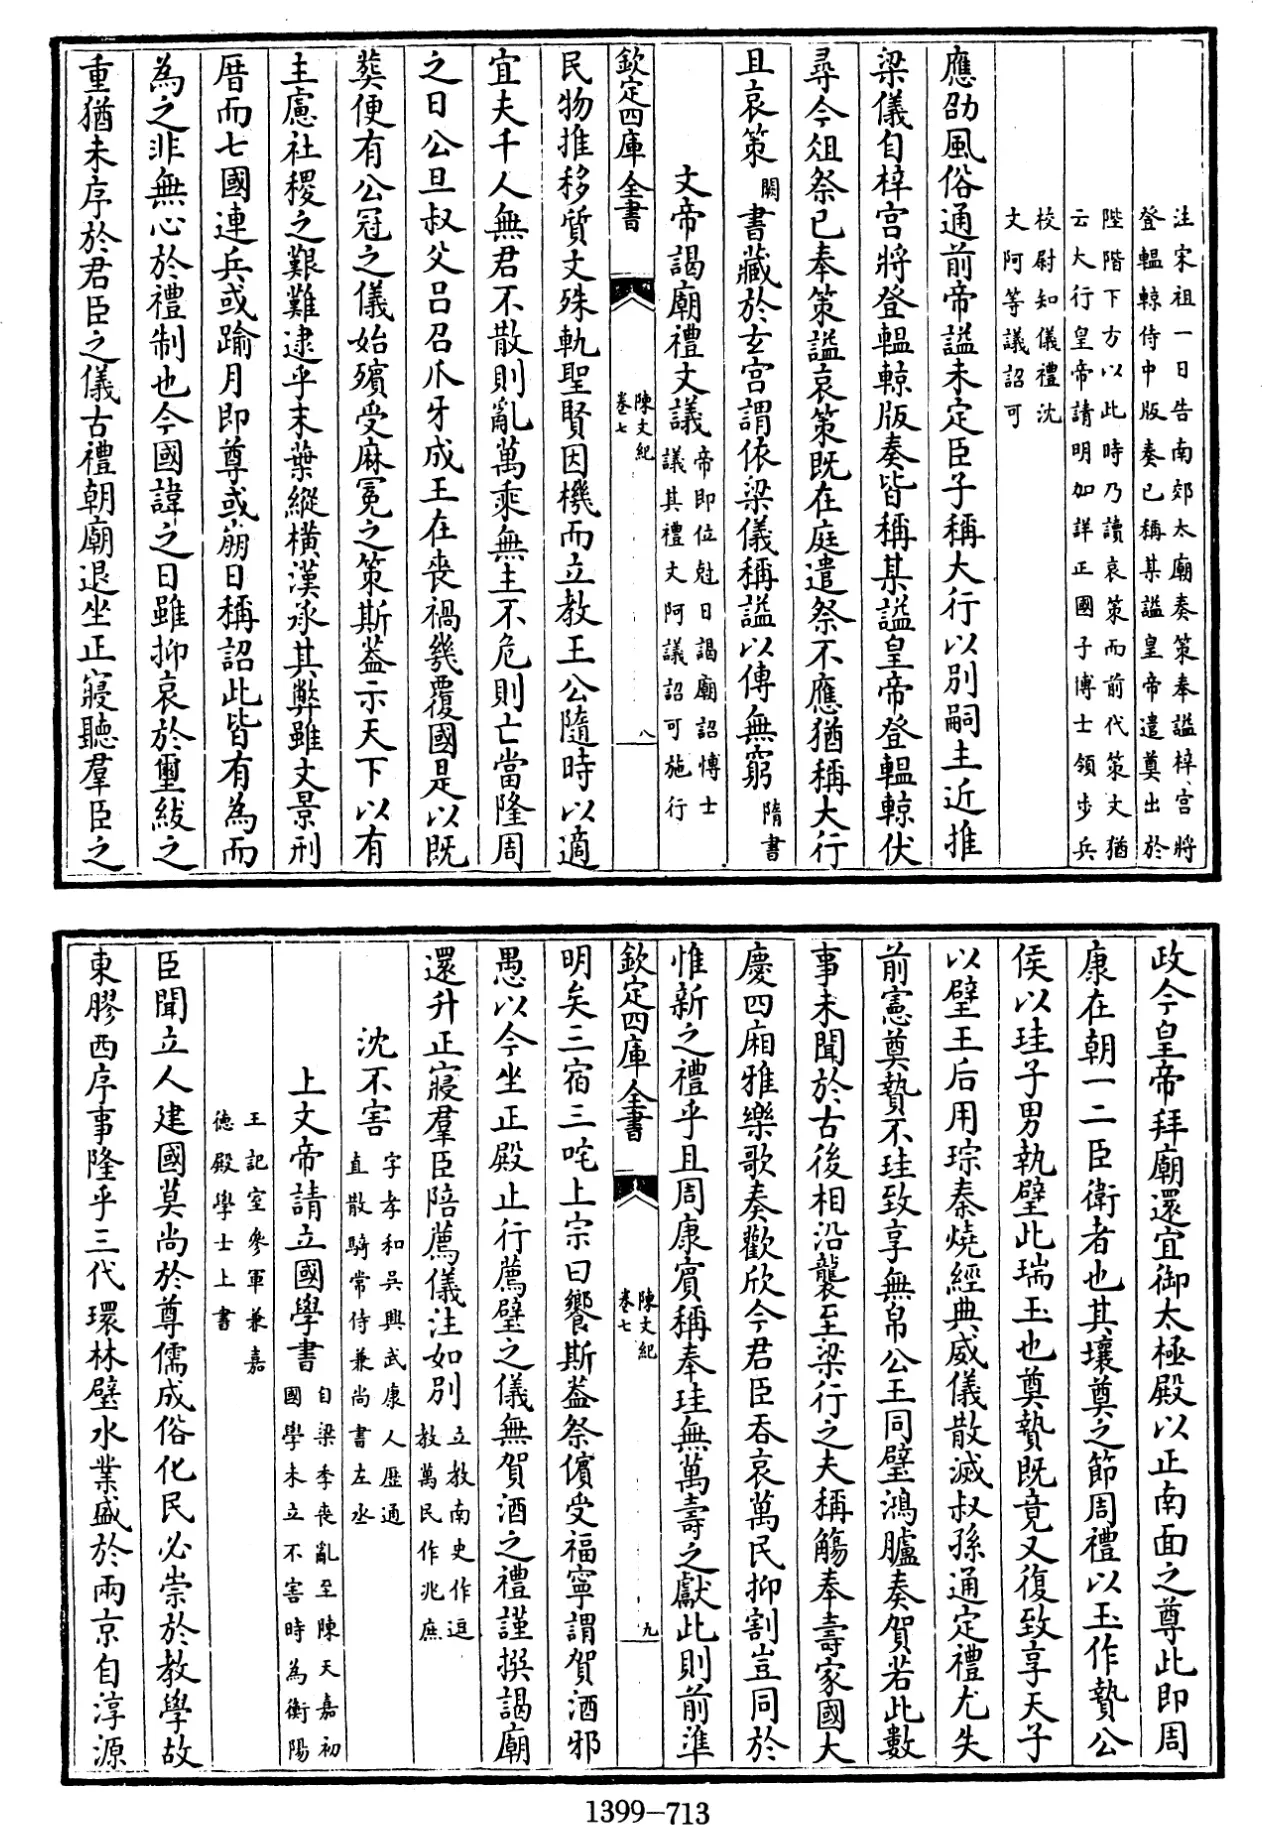 注宋祖一日告南郊太廟奏策奉諡梓宮將
登轀輬侍中版奏已稱某諡皇帝遣奠出於
陛階下方以此時乃讀哀策而前代策文猶
云大行皇帝請明加詳正國子博士領步兵
校尉知儀禮沈
文阿等議詔可
應劭風俗通前帝諡未定臣子稱大行以别嗣主近推
梁儀自梓宮將登轀輬版奏皆稱某諡皇帝登轀輬伏
尋今俎祭已奉策諡哀策既在庭遣祭不應猶稱大行
且哀策闕書藏於玄宮謂依梁儀稱諡以傳無窮隋書
文帝謁廟禮文議帝即位尅日謁廟詔博士
議其禮文阿議詔可施行
欽定四庫全書
陳文紀
卷七
八
民物推移質文殊軌聖賢因機而立教王公隨時以適
宜夫千人無君不散則亂萬乘無主不危則亡當隆周
之日公旦叔父呂召爪牙成王在喪禍幾覆國是以既
葬便有公冠之儀始殯受麻冕之策斯葢示天下以有
主慮社稷之艱難逮乎末葉縱橫漢承其弊雖文景刑
厝而七國連兵或踰月即尊或崩日稱詔此皆有為而
為之非無心於禮制也今國諱之日雖抑哀於璽紱之
重猶未序於君臣之儀古禮朝廟退坐正寢聽羣臣之
政今皇帝拜廟還宜御太極殿以正南面之尊此即周
康在朝一二臣衛者也其壤奠之節周禮以玉作贄公
侯以珪子男執璧此瑞玉也奠贄既竟又復致享天子
以璧王后用琮秦燒經典威儀散滅叔孫通定禮尤失
前憲奠贄不珪致享無帛公王同璧鴻臚奏賀若此數
事未聞於古後相沿襲至梁行之夫稱觴奉壽家國大
慶四廂雅樂歌奏歡欣今君臣吞哀萬民抑割豈同於
惟新之禮乎且周康賓稱奉珪無萬壽之獻此則前準
欽定四庫全書
陳文紀
卷七
九
明矣三宿三咤上宗曰饗斯葢祭儐受福寧謂賀酒邪
愚以今坐正殿止行薦璧之儀無賀酒之禮謹撰謁廟
還升正寢羣臣陪薦儀注如別立教南史作逗
教萬民作兆庶
沈不害字孝和吳興武康人歷通
直散騎常侍兼尚書左丞
上文帝請立國學書自梁季喪亂至陳天嘉初
國學未立不害時為衡陽
王記室參軍兼嘉
德殿學士上書
臣聞立人建國莫尚於尊儒成俗化民必崇於教學故
東膠西序事隆乎三代環林璧水業盛於兩京自淳源
1399-713